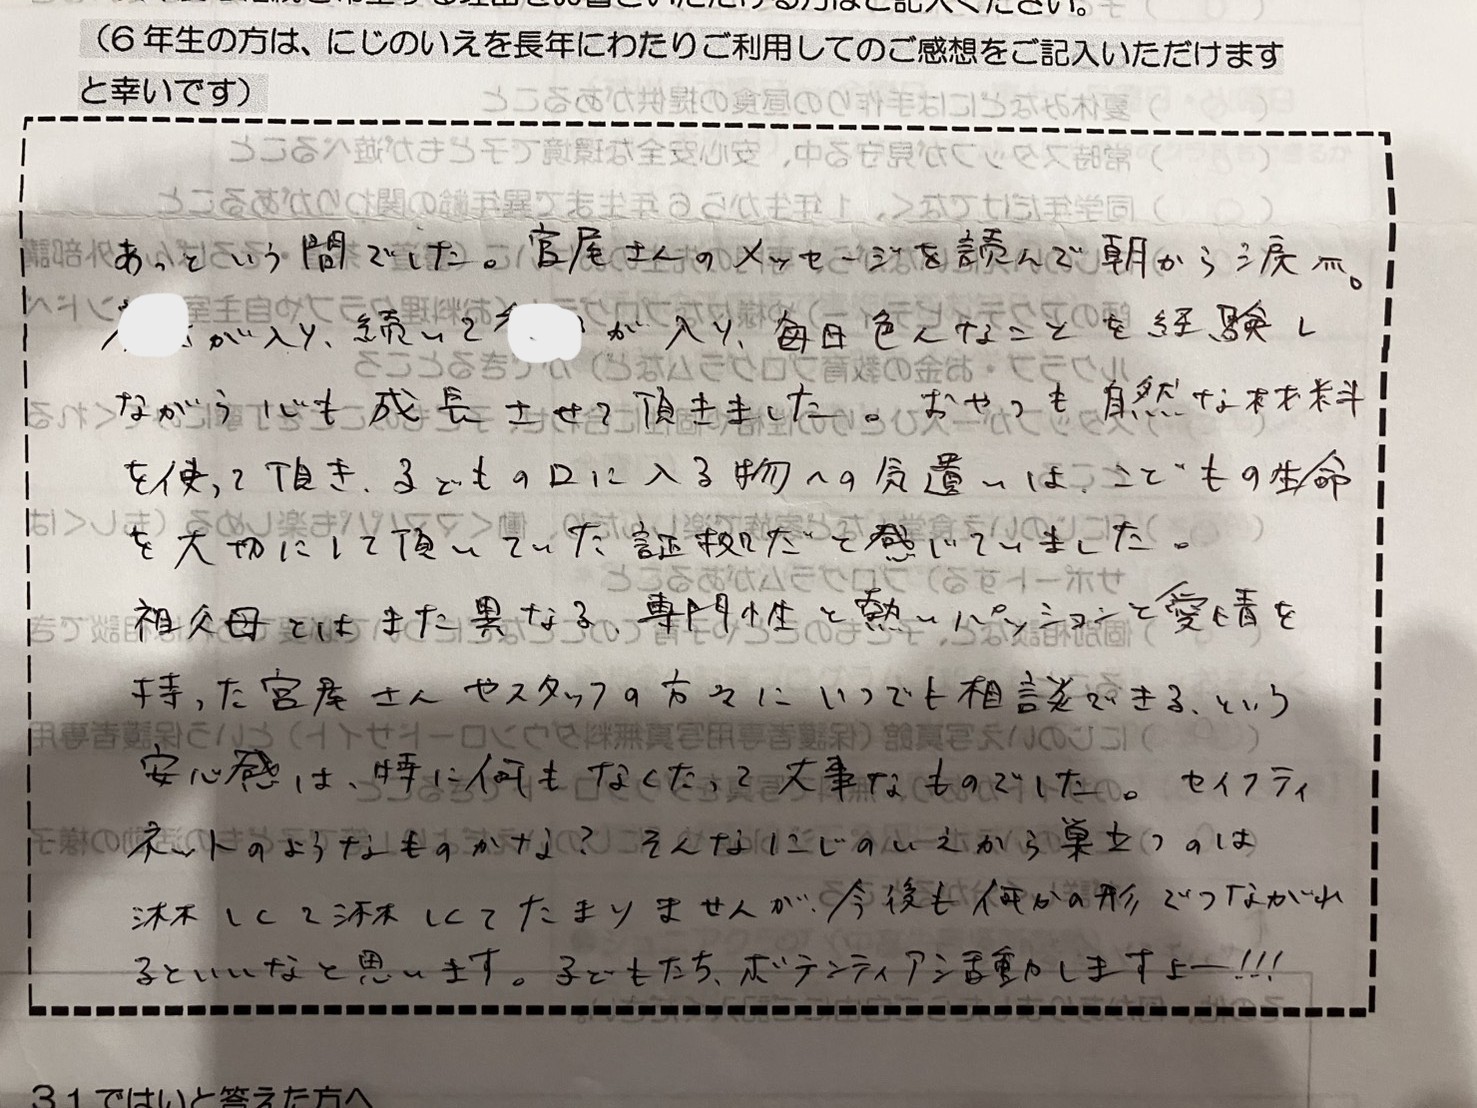 （6年生の方は、にじのいえを長年にわたりご利用してのご感想をご記入いただけます
と幸いです）
あっという間でした。宮尾さんのメッセージを読んで朝から涙
が入り、続いて が入り、毎日色んなことを経験し
ながら心も成長させて頂きました。おやつも自然な材料
を使って頂き、子どもの口に入る物への気遣いは、こどもの生命
を大切にして頂いていた証拠だと感じていました。
祖父母とはまた異なる、専門性と熱いパッションと愛情を
持った宮尾さんやスタッフの方々にいつでも相談できる、という
安心感は、時に何もなくたって大事なものでした。セイフティ
ネットのようなものかな？そんなにじのいえから巣立つのは
淋しくて淋しくてたまりませんが、今後も何かの形でつながれ
るといいなと思います。子どもたち、ボランティア活動しますよー!!!
31ではいと答えた方へ